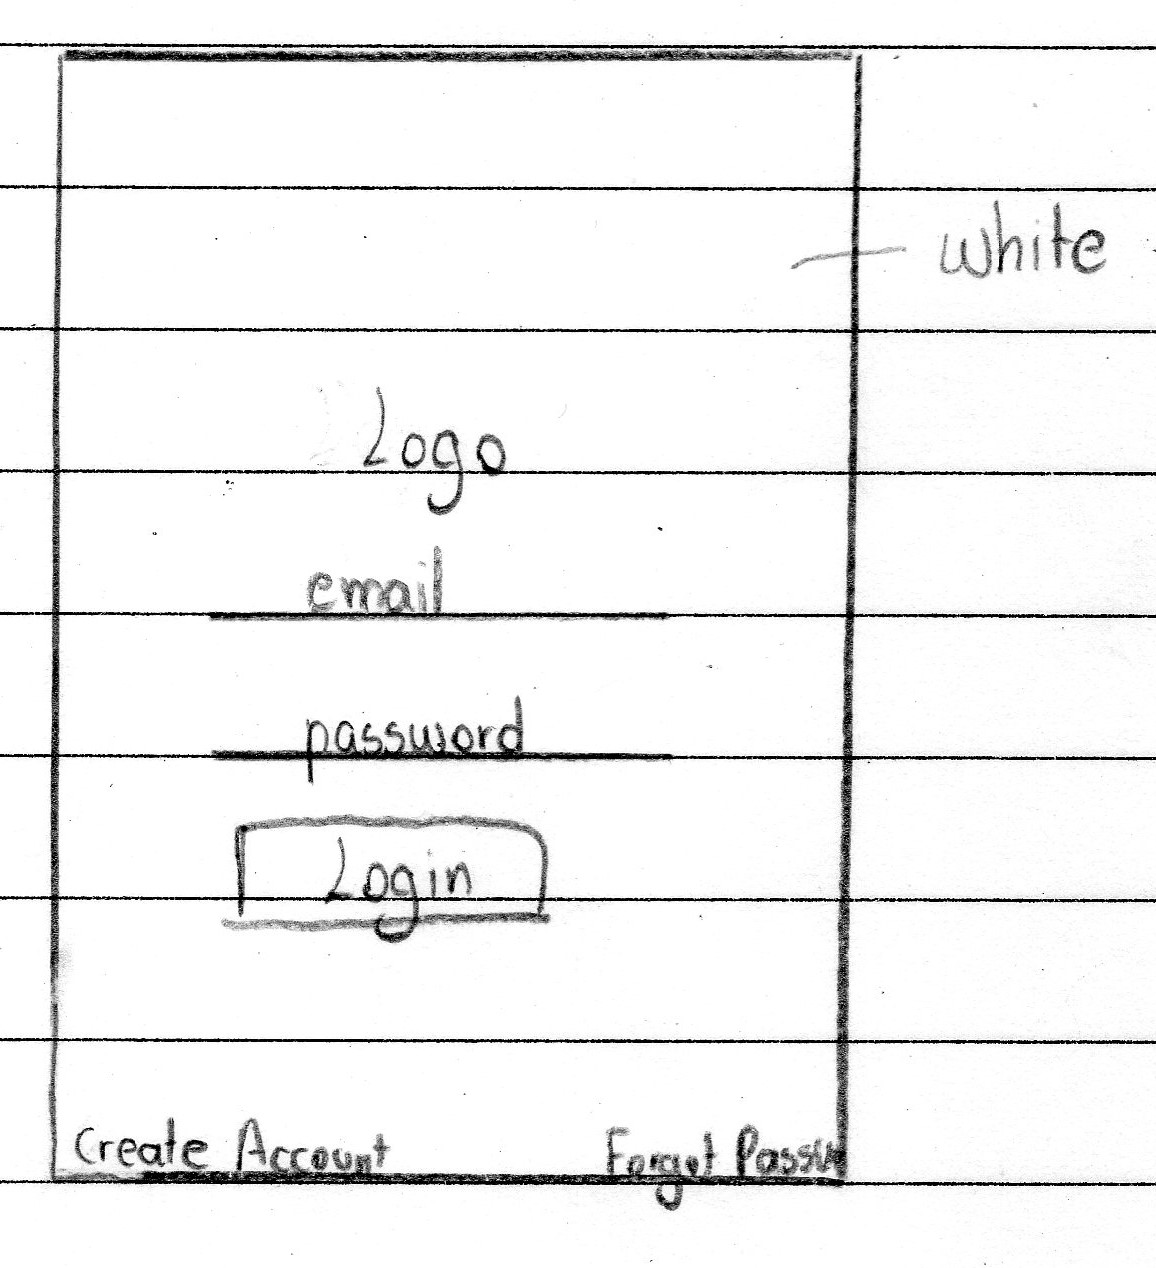 white
Logo
email
password
Login
Create Account
Forgot